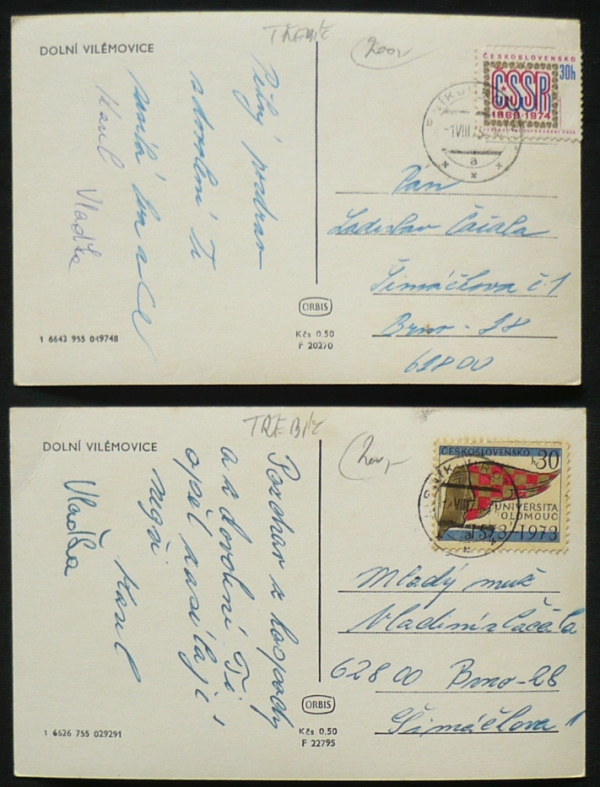 DOLNÍ VILÉMOVICE
TŘEBÍČ
ČESKOSLOVENSKO
30h
ČSSR
1968-1974
VIII.75
a
Milý pozdrav
z dovolené Ti
Karel
Vlaďka
Pan
Ladislav Čáčala
Šimáčkova č. 1
Brno - 28
628 00
ORBIS
Kčs 0,50
F 20270
1 6643 955 049748
DOLNÍ VILÉMOVICE
TŘEBÍČ
ČESKOSLOVENSKO
30
UNIVERSITA
OLOMOUC
1573-1973
Pozdrav z
a z dovolené Ti
opět zasílají
Karel
Vlaďka
Mladý muž
Vladimír Čáčala
628 00 Brno-28
Šimáčkova 1
ORBIS
Kčs 0,50
F 22795
1 6626 755 029291